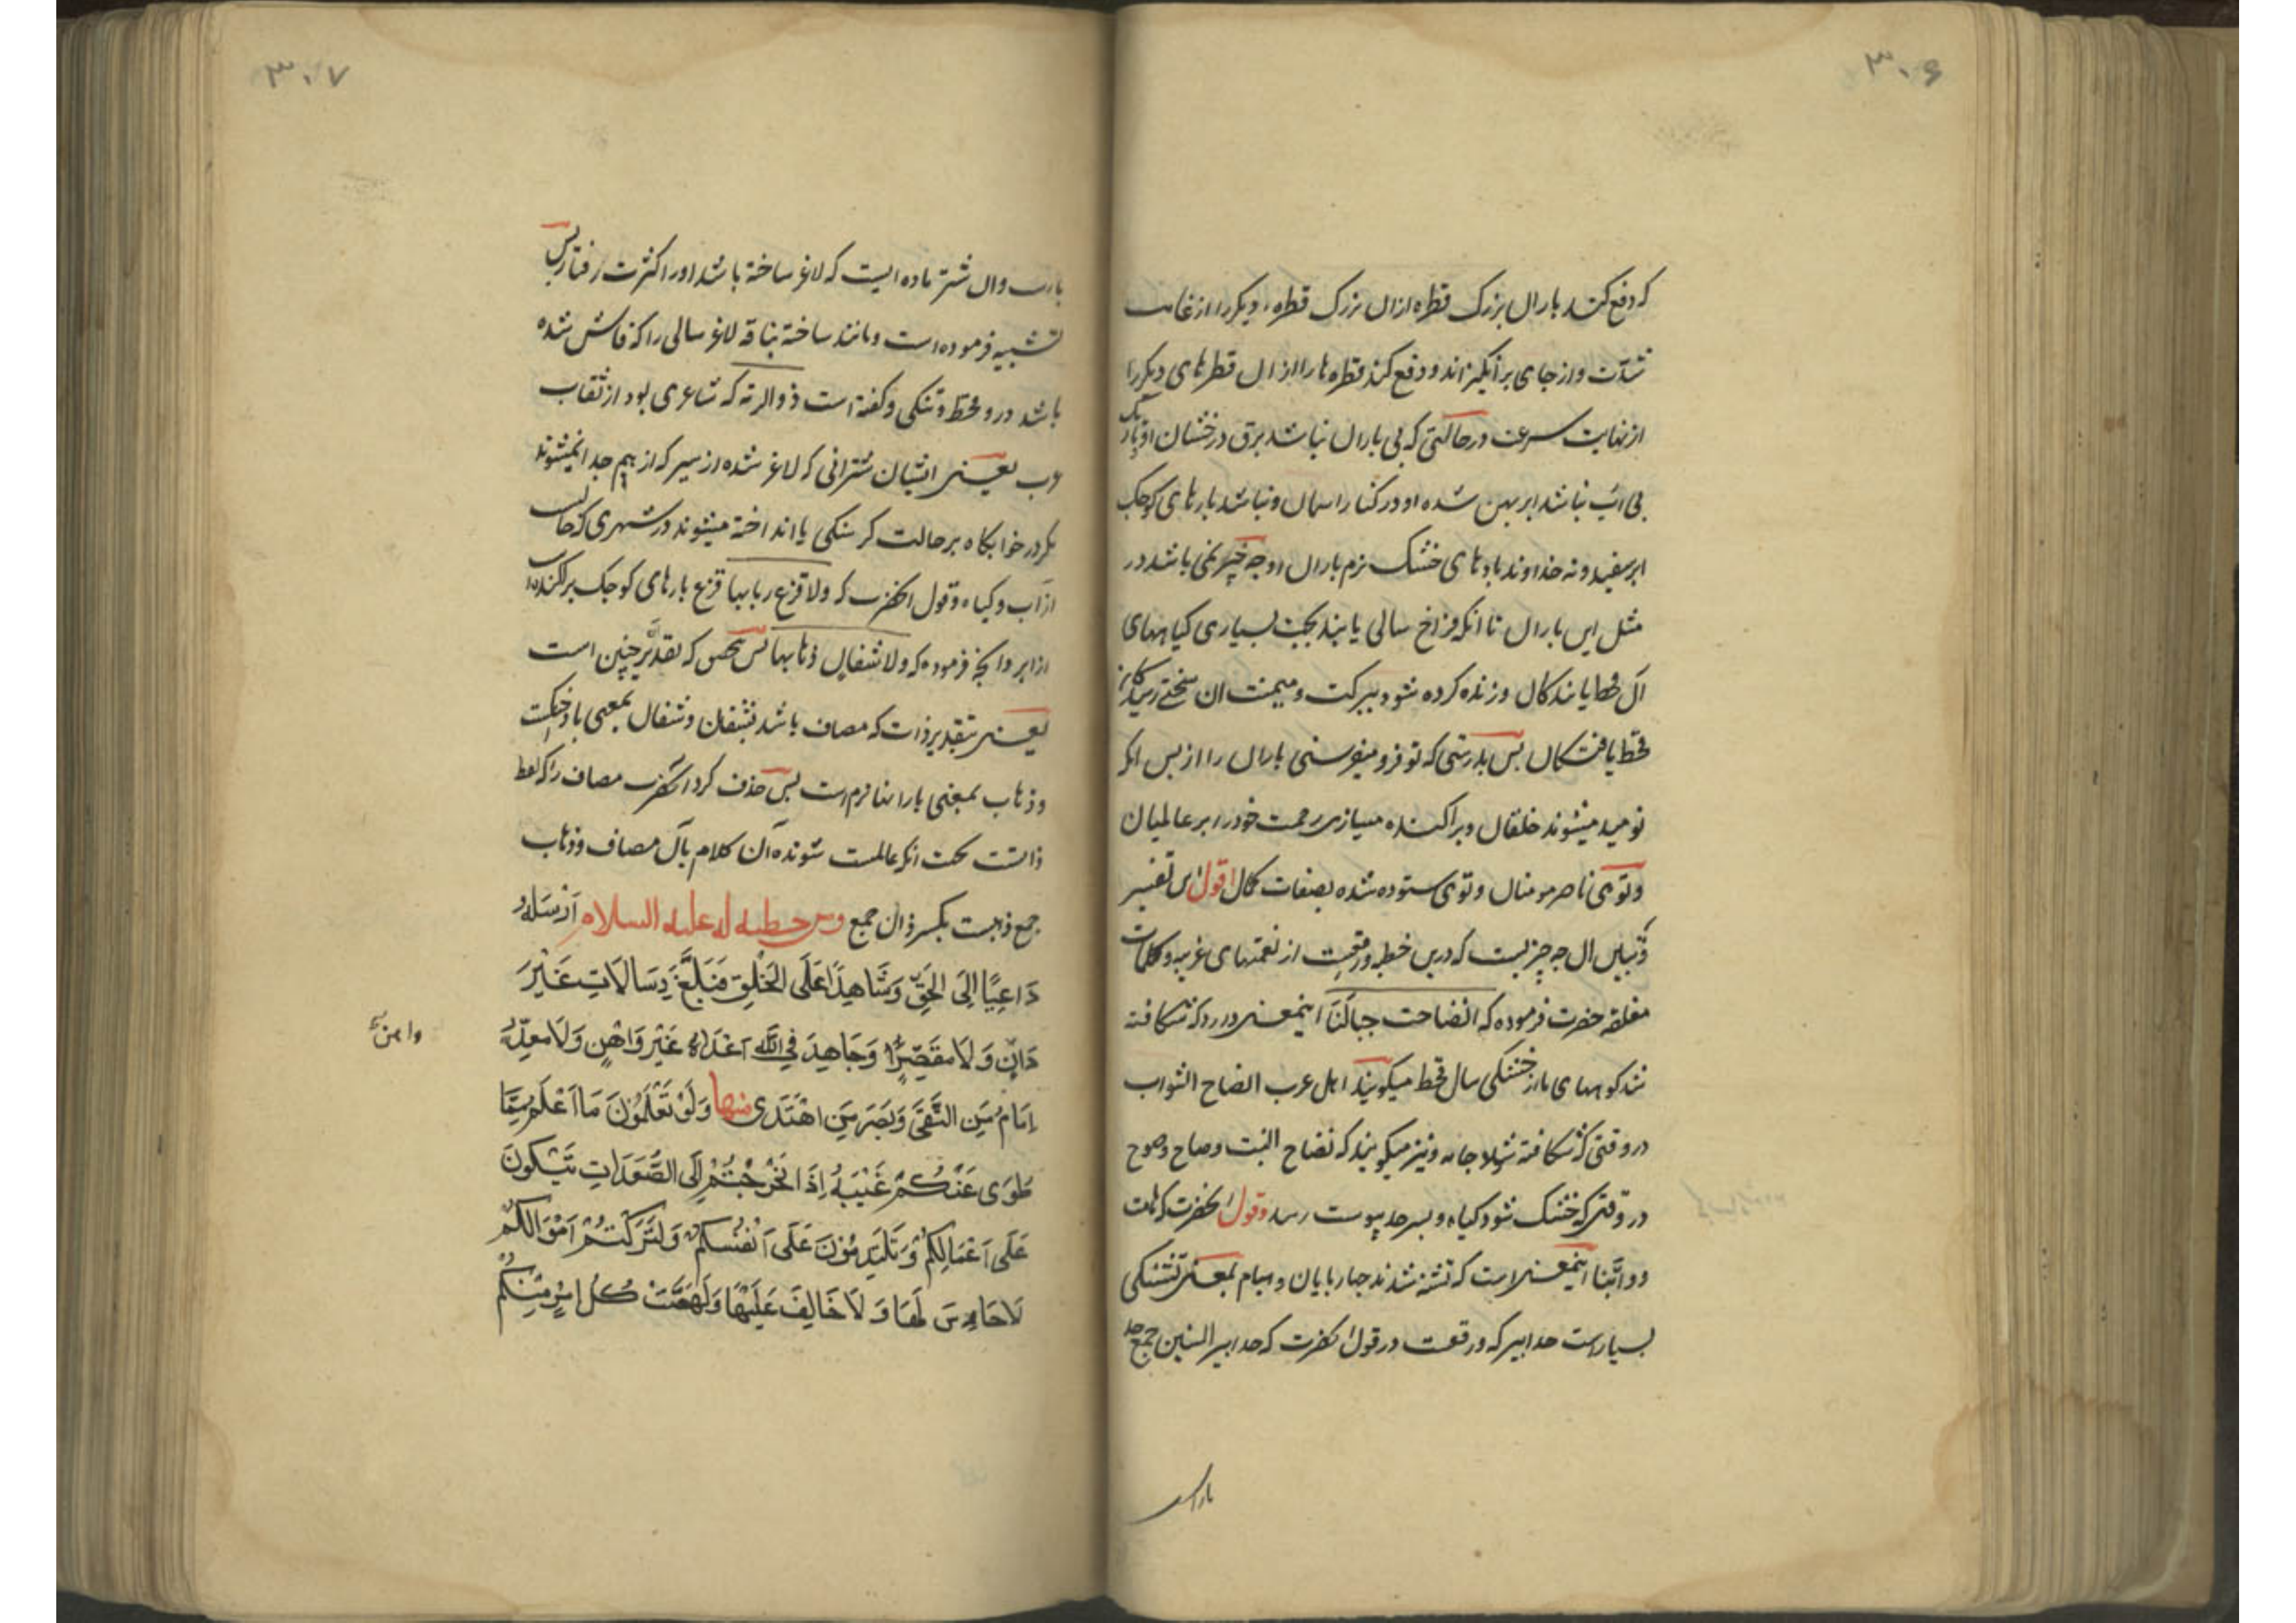 ۳۰۶
که دفع کند باران بزرگ قطره ازان بزرگ قطره دیکر را از غایت
شدّت و از جای برانکیزاند و دفع کند قطره‌ها را ازان قطرهای دیکر را
از نهایت سرعت در حالتی که بی باران نباشد برق درخشان او
بی اب نباشد ابر پهن شده او در کنار اسمان و نباشد پارهای کوچک
ابر سفید و نه خداوند بادهای خشک نرم باران او چه نمی باشد در
مثل این باران تا انکه فراخ سالی یابند بجهت بسیاری کیاههای
آن قحط یابندکان و زنده کرده شود ببرکت و میمنت ان سختی
قحط یافتکان پس بدرستی که تو فرو میفرستی باران را از پس انکه
نومید میشوند خلقان و پراکنده میسازی رحمت خود را بر عالمیان
و توئی ناصر مومنان و توی ستوده شده بصفات کمال اقول این تفسیر
و تبیین ان چه چیزیست که درین خطبه واقعست از نغتهای غریبه و کلمات
مغلقه حضرت فرموده که انصاحت جبالنا اینمعنی دارد که شکافته
شد کوههای ما از خشکی سال قحط میکویند اهل عرب انصاح الثوب
در وقتی که شکافته شود جامه و نیز میکویند که نصاح النبت و صاح وصوح
در وقتی که خشک شود کیاه و بسر حد پیوست رسد و قول انحضرت که هامت
دوابّنا اینمعنی است که تشنه شدند چهارپایان و هیام بمعنی تشنکی
بسیار است حدابیر که واقعست در قول انحضرت که حدابیر السنین جمع حد
بارست
۳۰۷
بارست وان شتر ماده ایست که لاغر ساخته باشد او را کثرت رفتار پس
تشبیه فرموده است و مانند ساخته بناقه لاغر سالی را که فاش شده
باشد درو قحط و تنکی و کفته است ذوالرمه که شاعری بود از
عرب یعنی ایشان شترانی که لاغر شده از سیر که از هم جدا نمیشوند
مکر در خوابکاه بر حالت کرسنکی یا انداخته میشوند در شهری که خالیست
از آب و کیاه و قول انحضرت که ولا قزع ربابها قزع پارهای کوچک پراکنده
از ابر و انچه فرموده که ولا شفان ذهابها پس بتحقیق که تقدیر چنین است
یعنی بتقدیر ذات که مضاف باشد بشفان و شفان بمعنی باد خنکست
و ذهاب بمعنی بارانهای نرم است پس حذف کرد انحضرت مضاف را که لفظ
ذاتست بجهت انکه عالمست شونده آن کلام بآن مضاف و ذهاب
جمع ذهبست بکسر ذال جمع ومن خطبه له علیه السلام اَرْسَلَهُ
دَاعِیًا اِلَی الْحَقِّ وَشَاهِدًا عَلَی الْخَلْقِ فَبَلَّغَ رِسَالَاتِ غَیْرَ
وَانٍ وَلَا مُقَصِّرٍ وَجَاهَدَ فِی اللّٰهِ اَعْدَاءَهُ غَیْرَ وَاهِنٍ وَلَا مُعَذِّرٍ
اِمَامُ مَنِ اتَّقَی وَبَصَرُ مَنِ اهْتَدَی منها وَلَوْ تَعْلَمُونَ مَا اَعْلَمُ مِمَّا
طُوِیَ عَنْکُمْ غَیْبَهُ اِذًا لَخَرَجْتُمْ اِلَی الصُّعُدَاتِ تَبْکُونَ
عَلَی اَعْمَالِکُمْ وَتَلْتَدِمُوْنَ عَلَی اَنْفُسِکُمْ وَلَتَرَکْتُمْ اَمْوَالَکُمْ
لَا حَارِسَ لَهَا وَلَا خَالِفَ عَلَیْهَا وَلَهَمَّتْ کُلَّ امْرِءٍ مِنْکُمْ